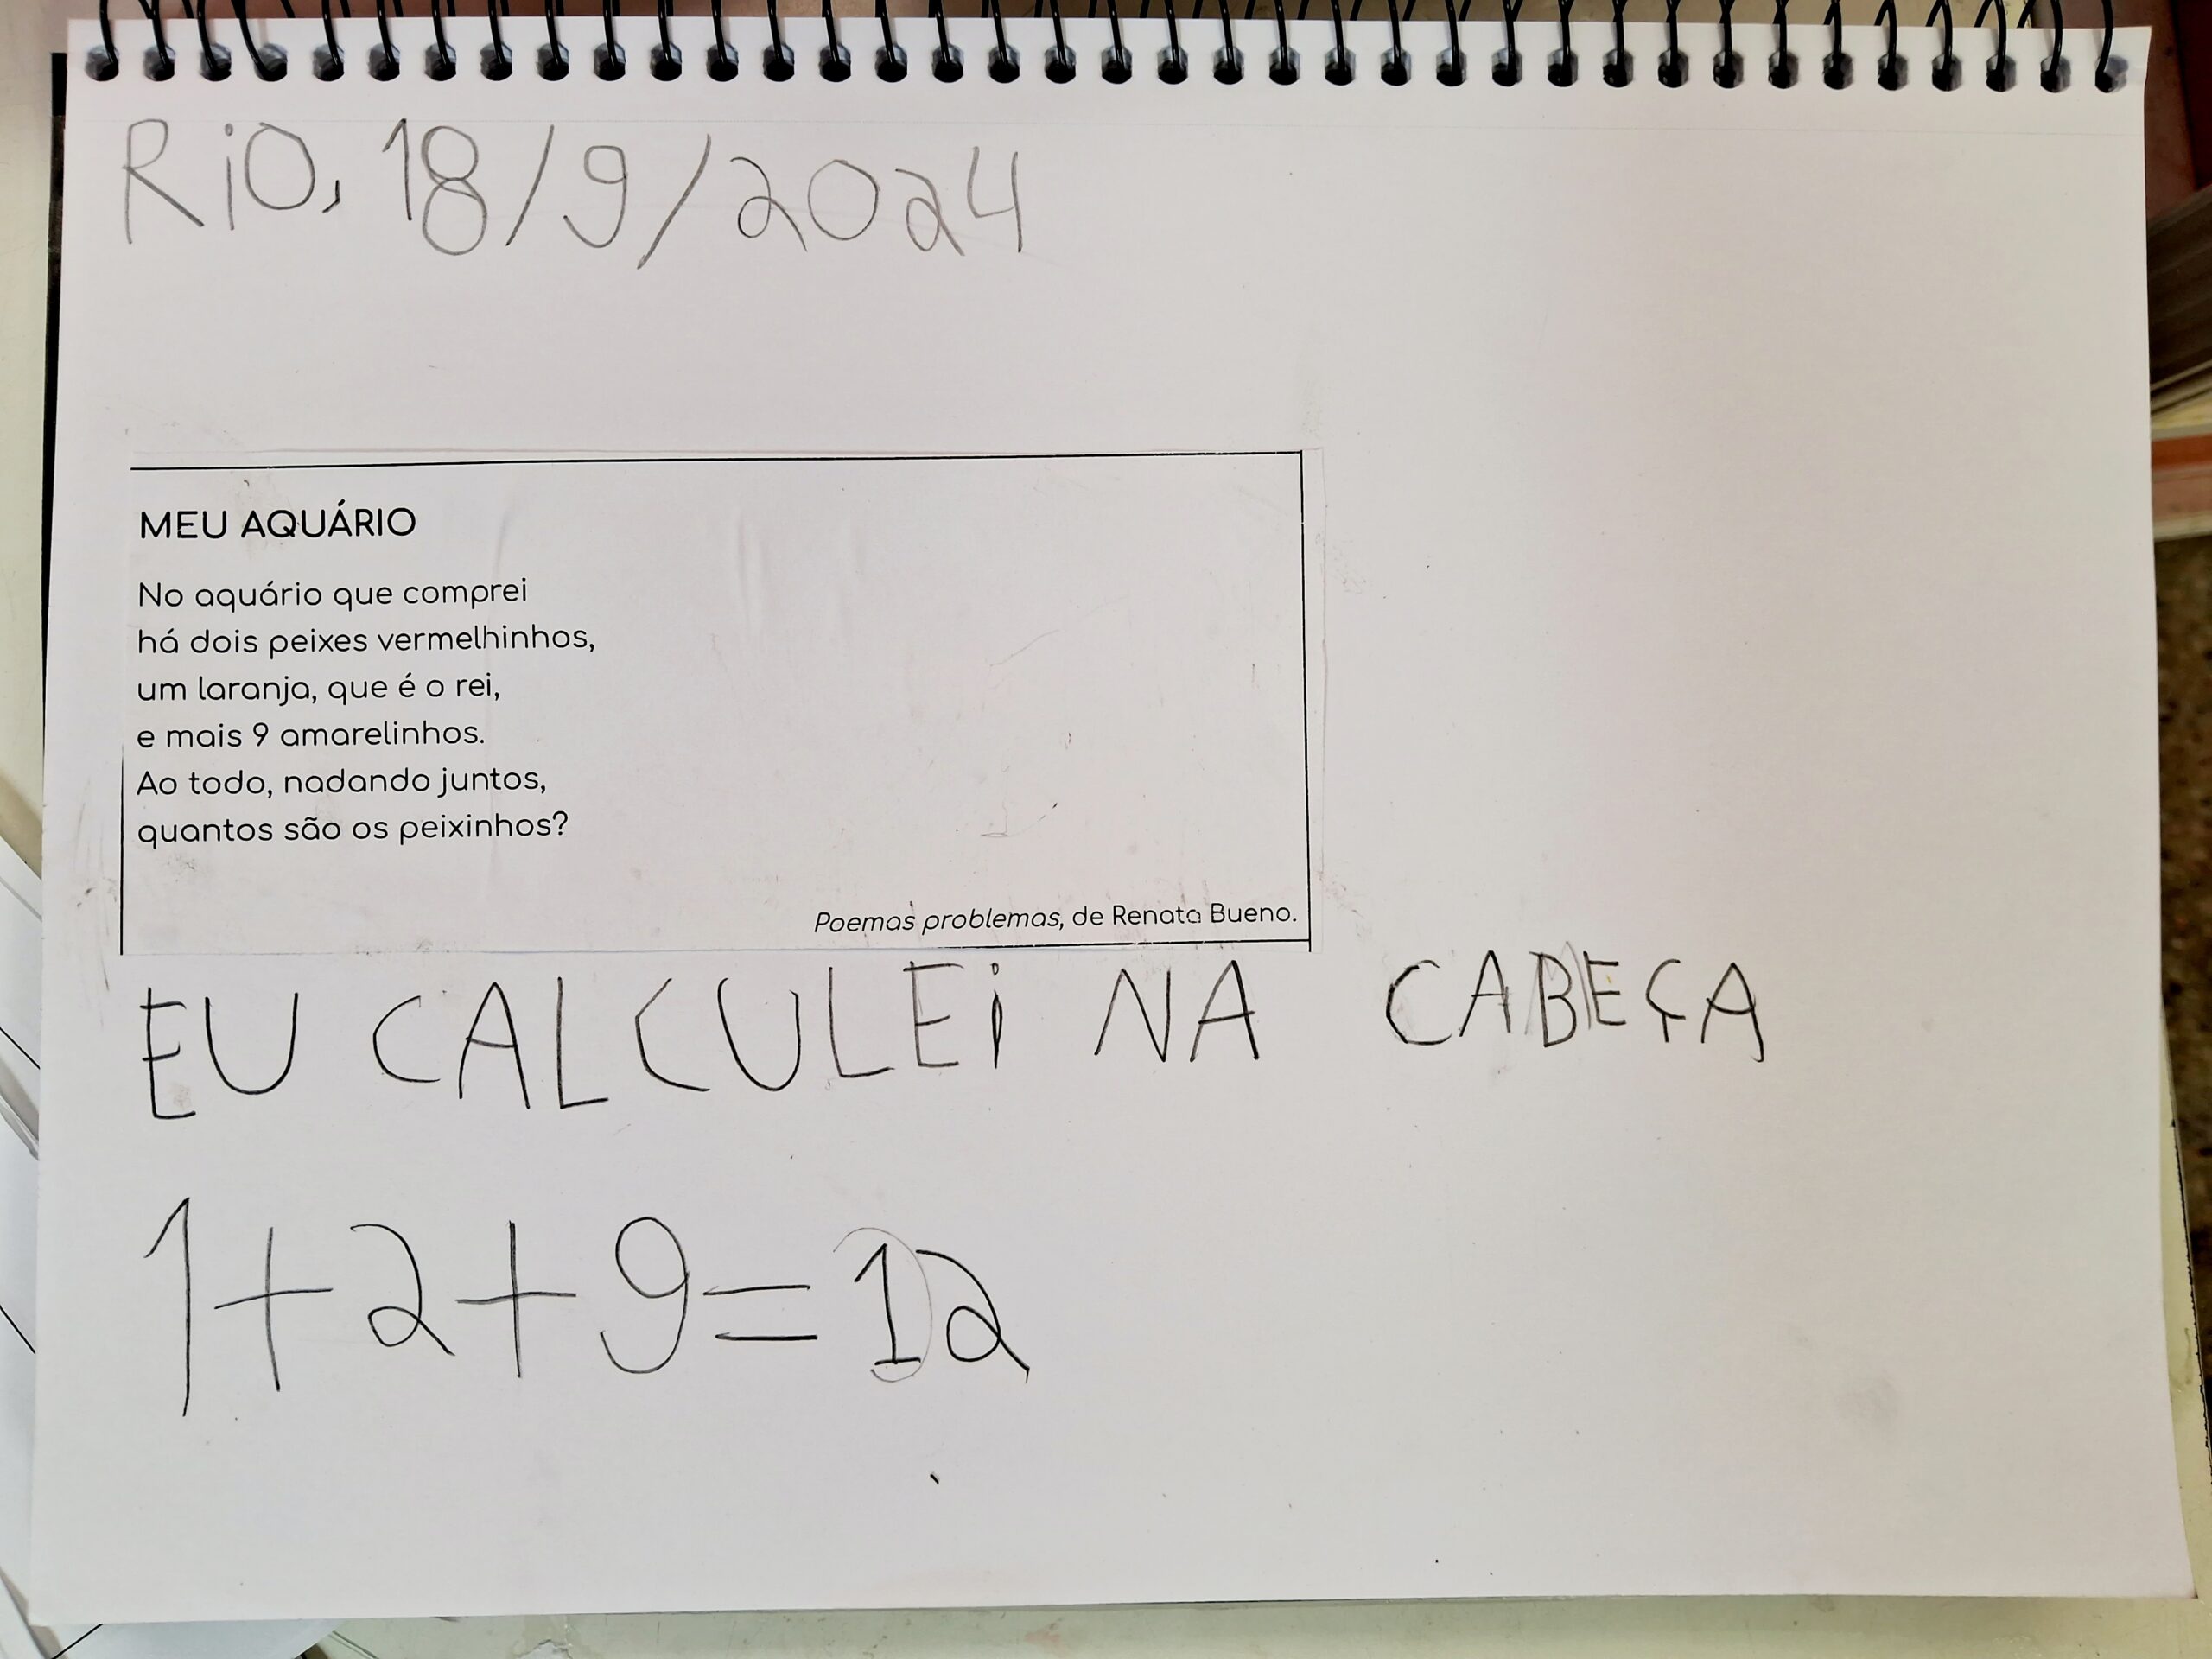 RiO, 18/9/2024
MEU AQUÁRIO
No aquário que comprei
há dois peixes vermelhinhos,
um laranja, que é o rei,
e mais 9 amarelinhos.
Ao todo, nadando juntos,
quantos são os peixinhos?
Poemas problemas, de Renata Bueno.
EU CALCULEi NA CABEÇA
1+2+9=12